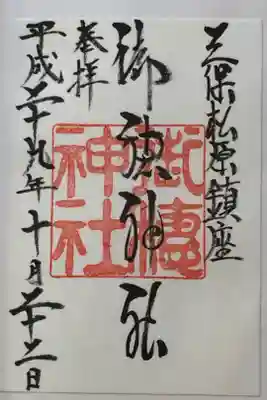 三保松原鎮座
御穂神社
奉拝
平成二十九年十月二十二日
御穂
神社